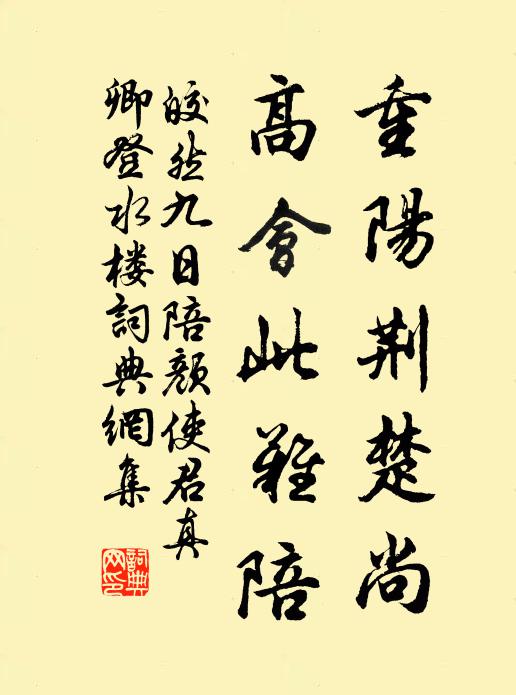 重陽荆楚尚
高會此難陪
皎然九日陪顔使君真
卿登水楼詞典網集
詞典
网印